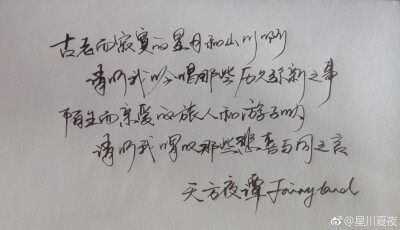 古老而寂寞的星月和山川啊
请听我吟唱那些历久弥新之事
陌生而亲爱的旅人和游子呦
请听我唱叹那些悲喜与同之言
天方夜谭Fairyland
@星川夏夜